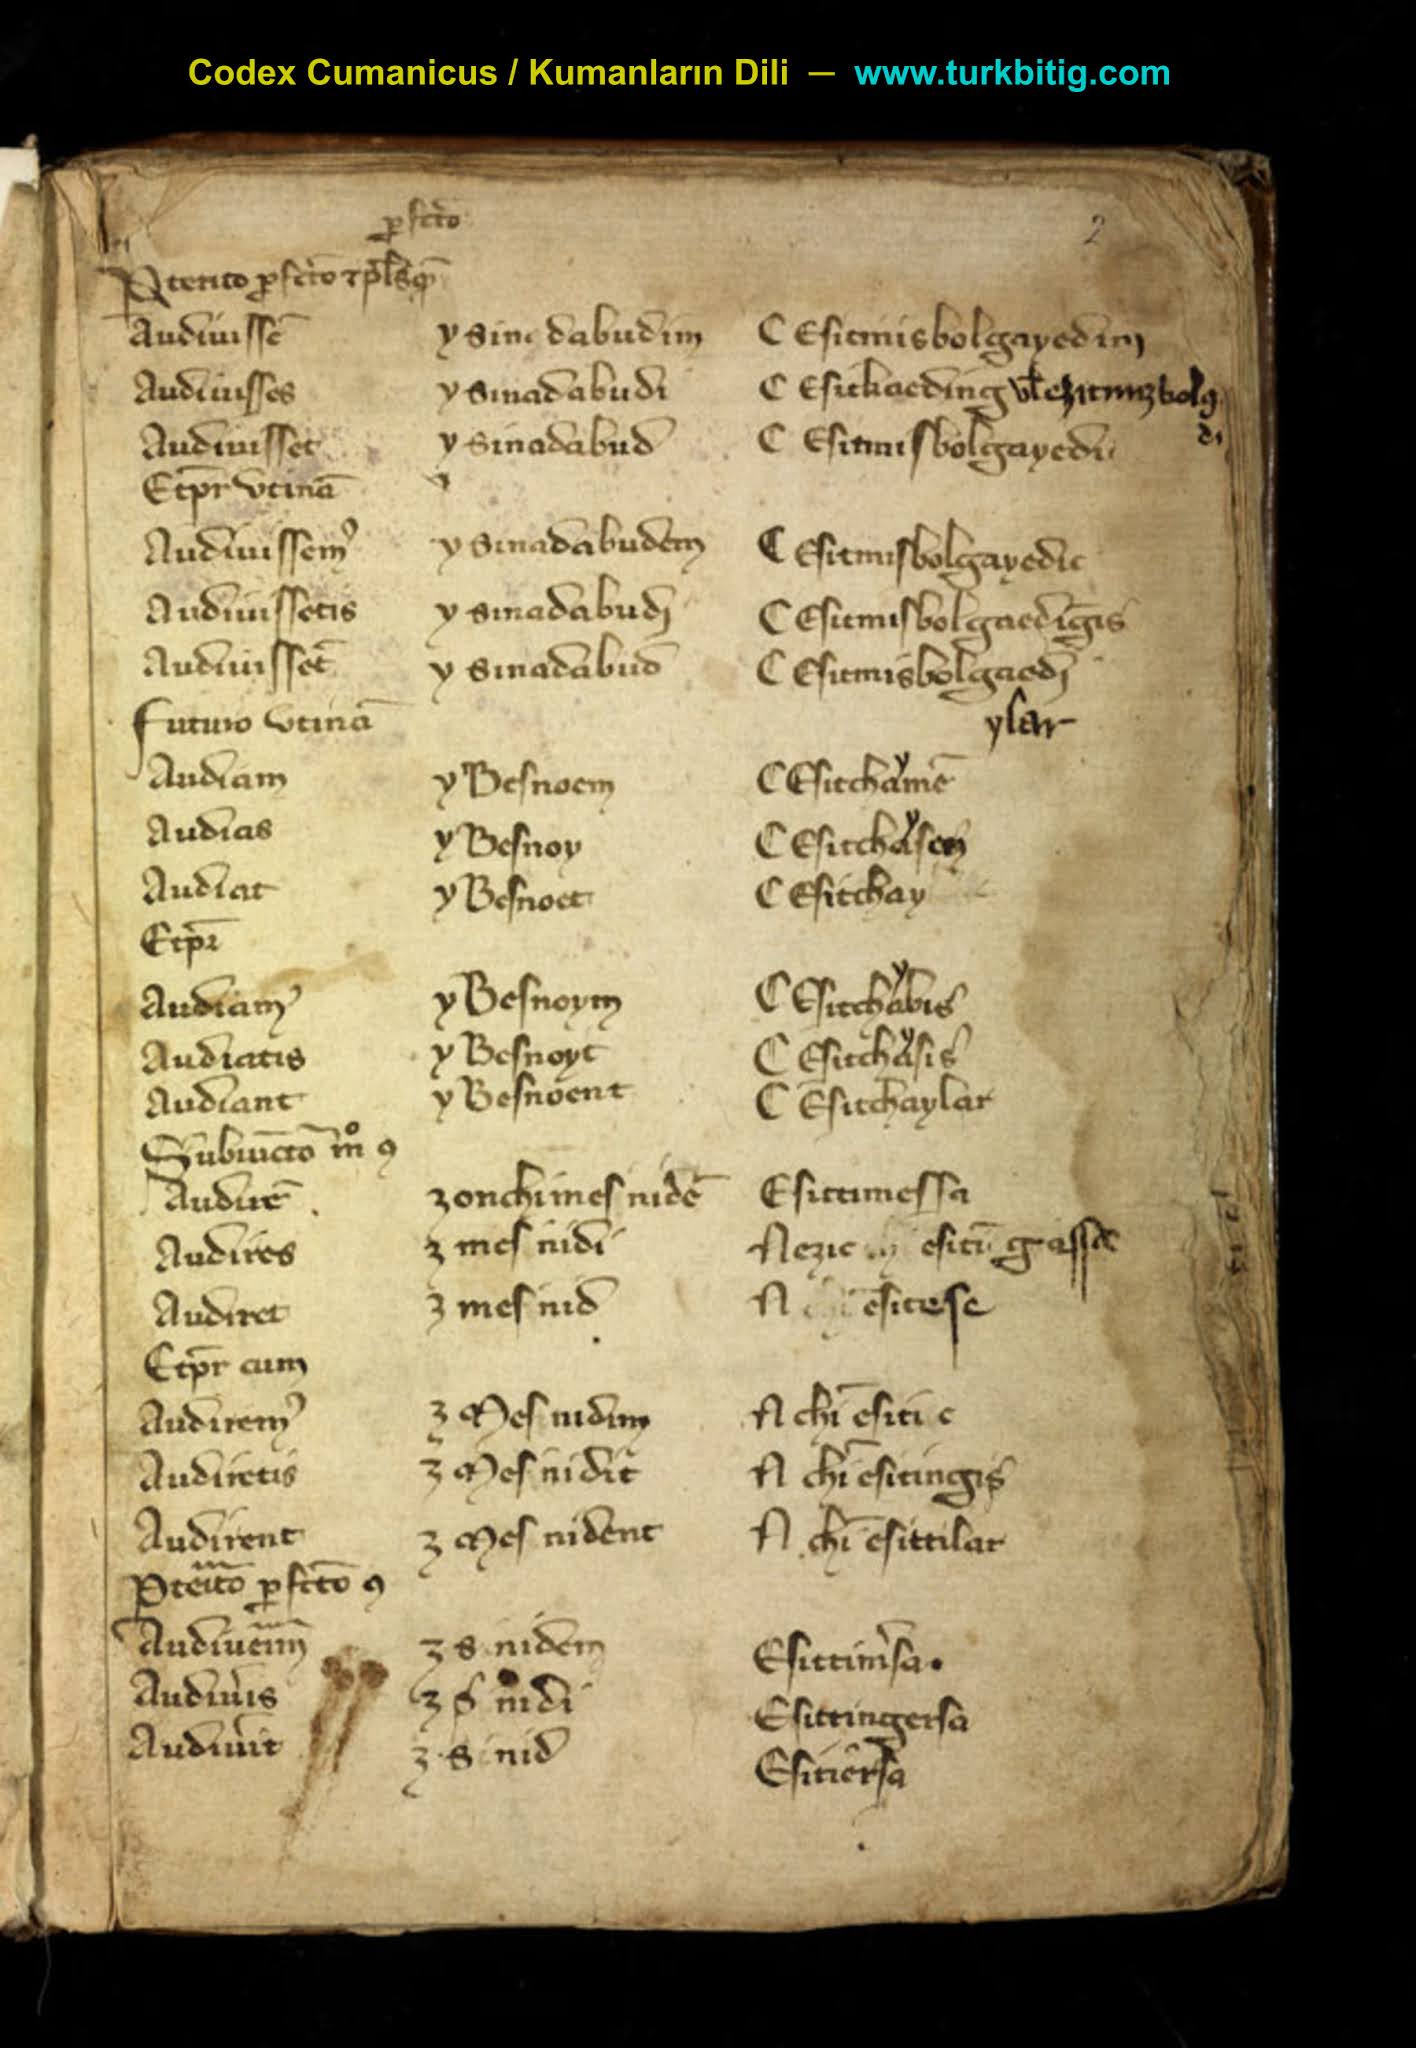 Codex Cumanicus / Kumanların Dili — www.turkbitig.com
2
p̱fcto
Pterito p̱fcto ⁊ pl̄sq̄
Audiuissē y sina dabudim C Esitmisbolgayedim
Audiuisses y sinadabudi C Esitkaeding vl̄ ezitmizbolg
di
Audiuisset y sinadabud C Esitmisbolgayedi
Etpr̄ vtinā
Audiuissem⁹ y sinadabudem C Esitmisbolgayedic
Audiuissetis y sinadabudi C Esitmisbolgaedīgis
Audiuissēt y sinadabud C Esitmisbolgaedi
ylar
Futuro vtinā
Audiam y Besnoem C Esitchaymē
Audias y Besnoy C Esitchaysen
Audiat y Besnoet C Esitchay
Etpr̄
Audiam⁹ y Besnoym C Esitchaybis
Audiatis y Besnoyt C Esitchaysis
Audiant y Besnoent C Esitchaylar
Subiūcto mº ꝯ
Audirē zonchimes nidē Esittimessa
Audires z mes nidi Nezic esitū gassa
Audiret z mes nid N esitese
Etpr̄ cum
Audirem⁹ z Mes nidim N chī esiti c
Audiretis z Mes nidit N chī esitingis
Audirent z Mes nident N chī esittilar
Pteito p̱fcto ꝯ
Audiuerim z s nidem Esittimsa
Audiuis z s nidi Esittingersa
Audiuit z s nid Esitiersa